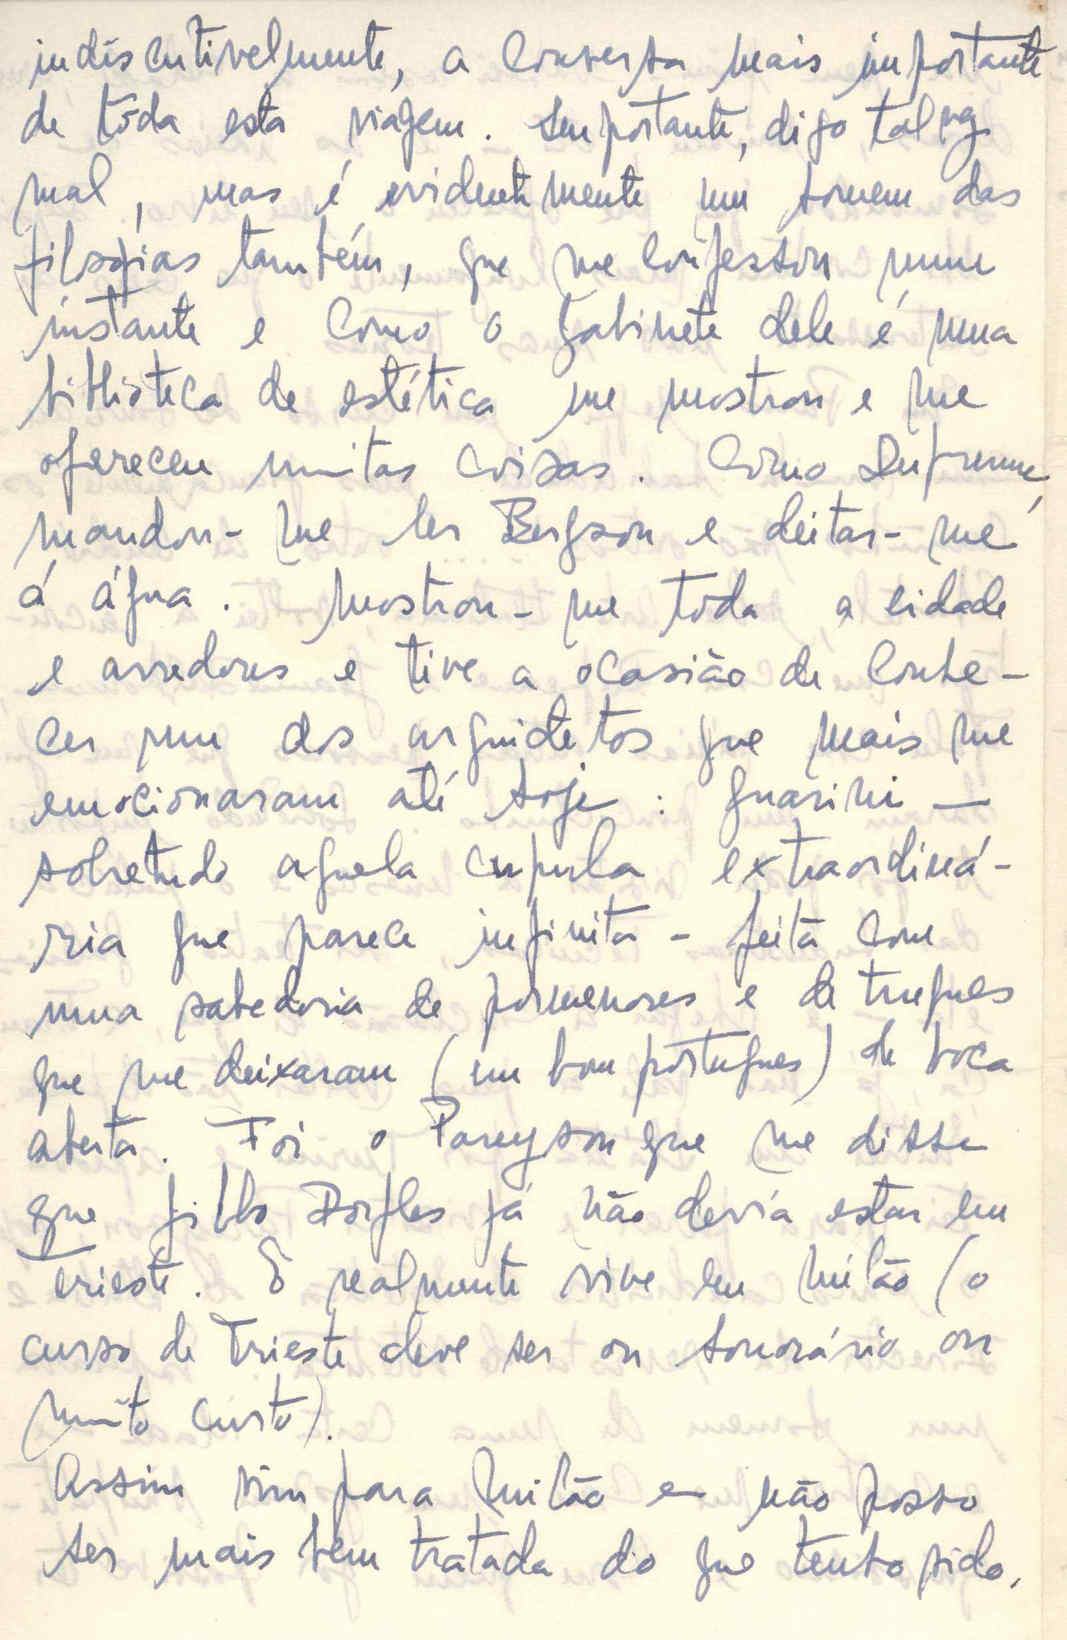 indiscutivelmente, a conversa mais importante
de tôda esta viagem. Importante, digo talvez
mal, mas é evidentemente um homem das
filosofias também, que me confessou num
instante e como o gabinete dele é uma
biblioteca de estética me mostrou e me
ofereceu muitas coisas. Como Dufrenne,
mandou-me ler Bergson e deitar-me
á água. Mostrou-me toda a cidade
e arredores e tive a ocasião de conhe-
cer um dos arquitetos que mais me
emocionaram até hoje: Guarini —
sobretudo aquela cupula extraordiná-
ria que parece infinita - feita com
uma sabedoria de pormenores e de truques
que me deixaram (em bom portugues) de boca
aberta. Foi o Pareyson que me disse
que Gillo Dorfles já não devia estar em
Trieste. E realmente vive em Milão (o
curso de Trieste deve ser ou honorário ou
muito curto).
Assim vim para Milão e não posso
ser mais bem tratada do que tenho sido.